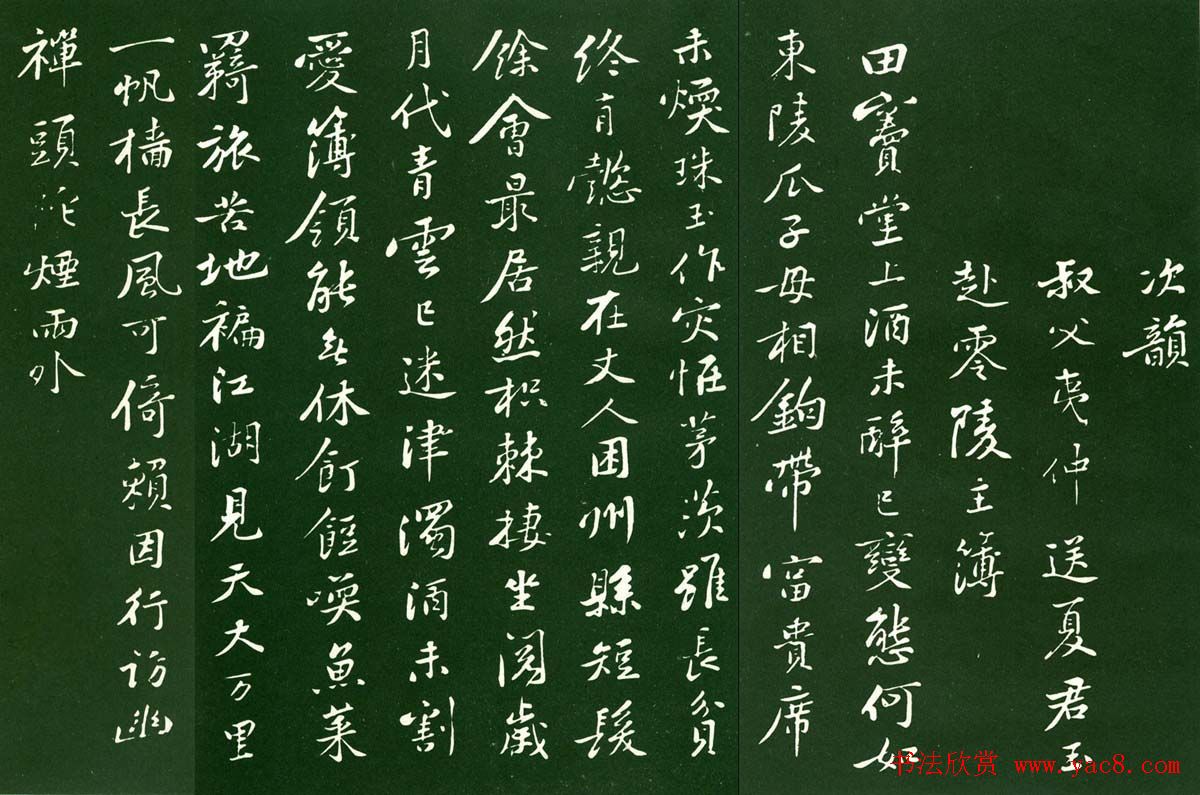 次韻
叔父夷仲送夏君玉
赴零陵主簿
田竇堂上酒未醉已變態何如
東陵瓜子母相鉤帶富貴席
未煖珠玉作災怪茅茨雖長貧
終有懿親在丈人困州縣短髮
餘會最居然枳棘棲坐閱歲
月代青雲已迷津濁酒未割
愛簿領能無休飣餖喚魚菜
羇旅苦地褊江湖見天大万里
一帆檣長風可倚賴因行訪幽
禪頭陀煙雨外
书法欣赏 www.yac8.com